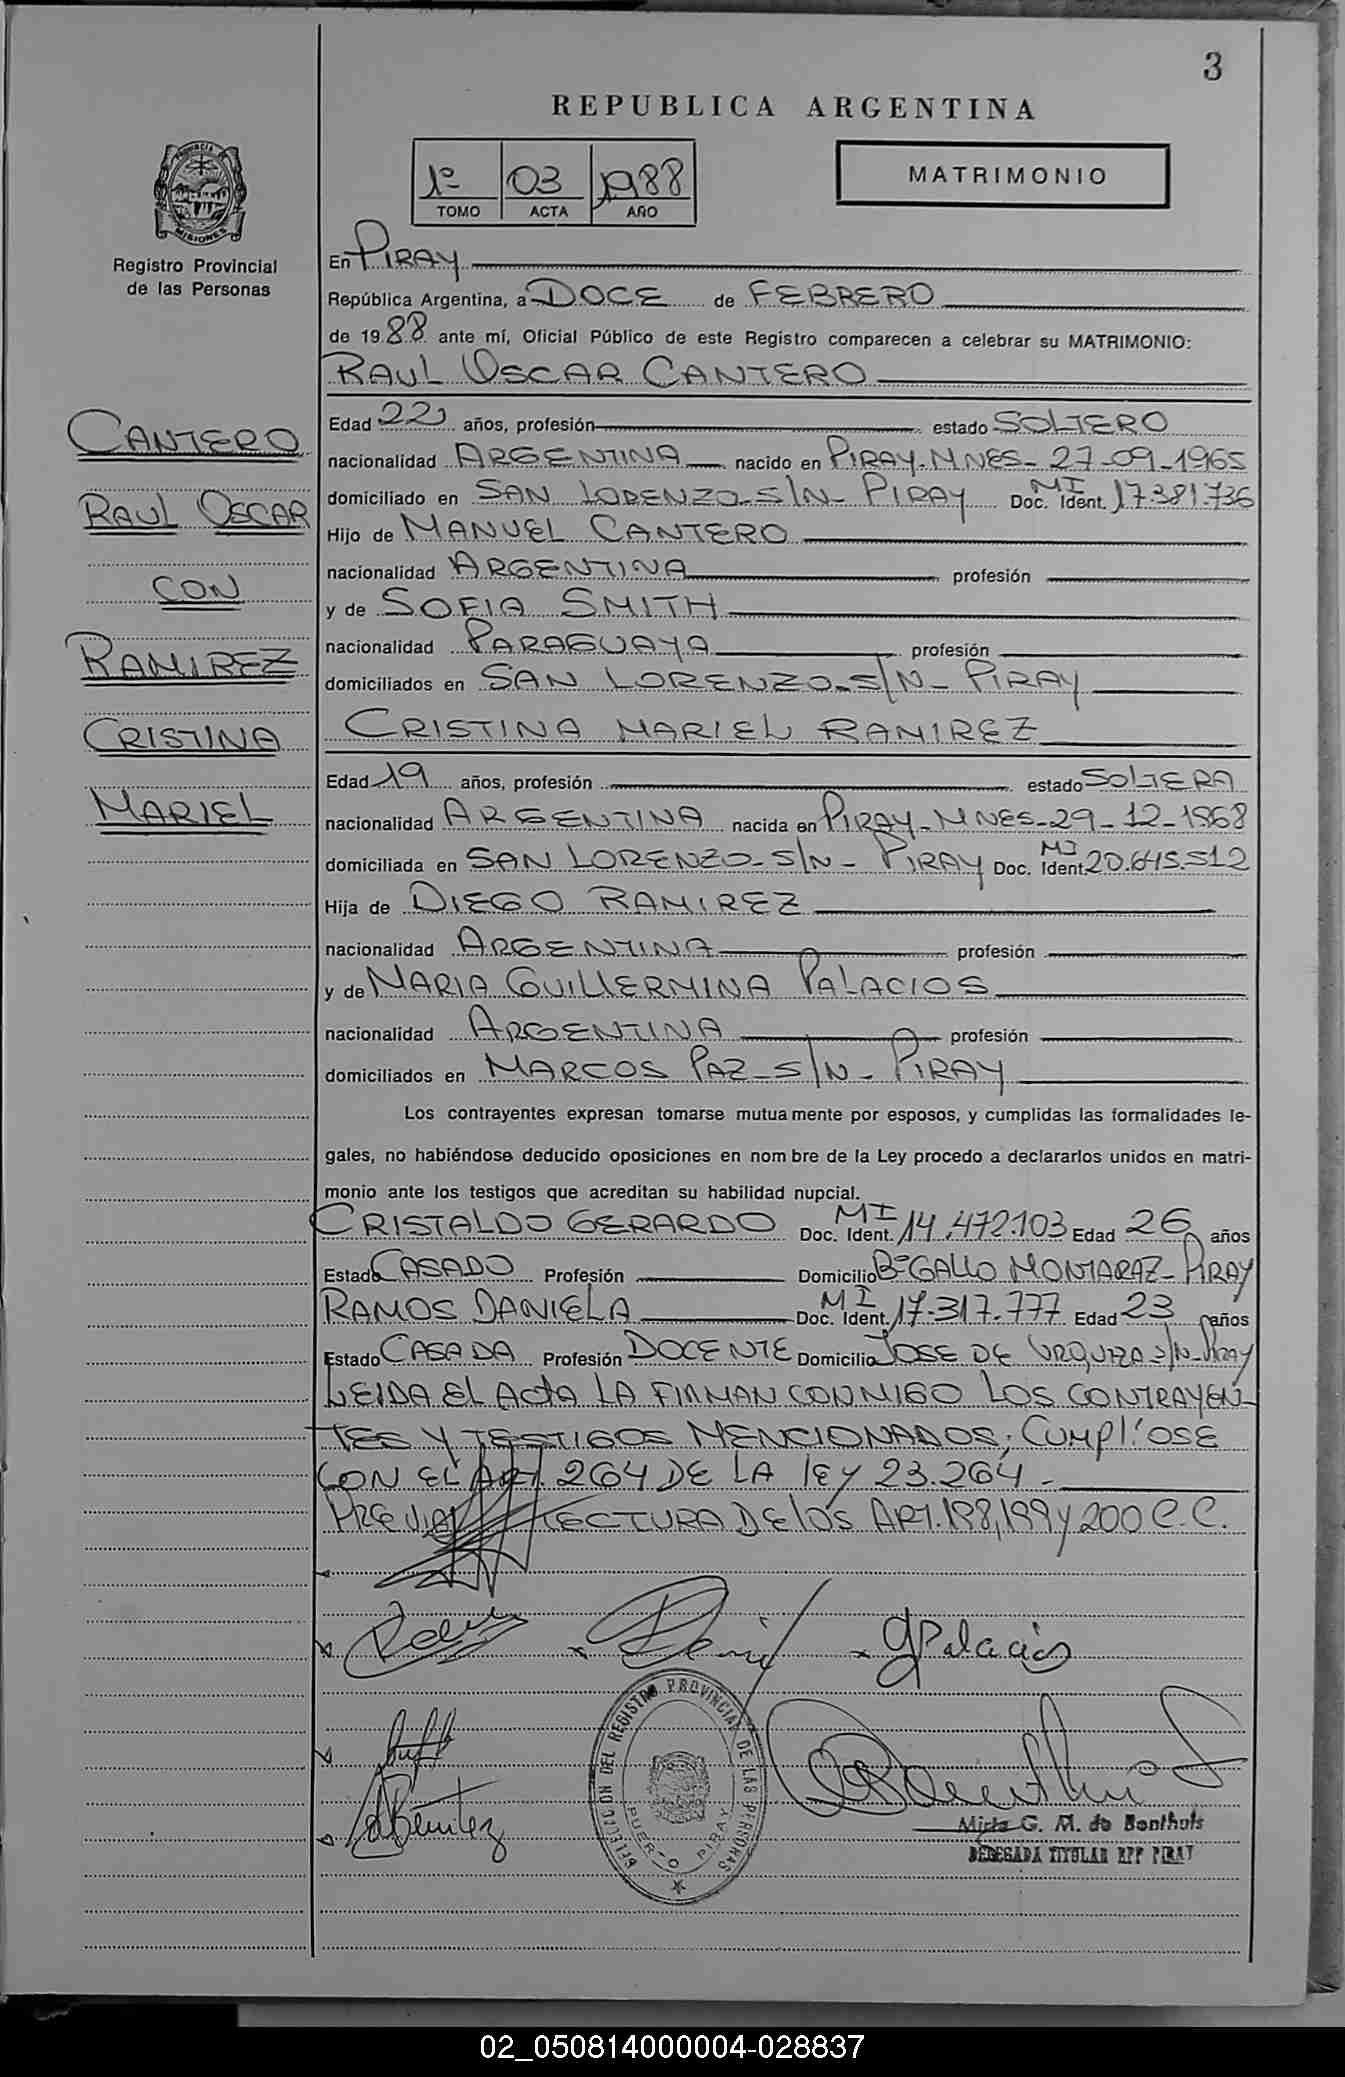 3
REPUBLICA ARGENTINA
1º 03 1988
TOMO ACTA AÑO
MATRIMONIO
PROVINCIA DE
MISIONES
Registro Provincial
de las Personas
CANTERO
RAUL OSCAR
CON
RAMIREZ
CRISTINA
MARIEL
En PIRAY
República Argentina, a DOCE de FEBRERO
de 1988 ante mí, Oficial Público de este Registro comparecen a celebrar su MATRIMONIO:
RAUL OSCAR CANTERO
Edad 22 años, profesión estado SOLTERO
nacionalidad ARGENTINA nacido en PIRAY-MNES-27-09-1965
domiciliado en SAN LORENZO-S/N-PIRAY Doc. Ident. MI 17.381.736
Hijo de MANUEL CANTERO
nacionalidad ARGENTINA profesión
y de SOFIA SMITH
nacionalidad PARAGUAYA profesión
domiciliados en SAN LORENZO-S/N-PIRAY
CRISTINA MARIEL RAMIREZ
Edad 19 años, profesión estado SOLTERA
nacionalidad ARGENTINA nacida en PIRAY-MNES-29-12-1968
domiciliada en SAN LORENZO-S/N-PIRAY Doc. Ident. MI 20.615.512
Hija de DIEGO RAMIREZ
nacionalidad ARGENTINA profesión
y de MARIA GUILLERMINA PALACIOS
nacionalidad ARGENTINA profesión
domiciliados en MARCOS PAZ-S/N-PIRAY
Los contrayentes expresan tomarse mutuamente por esposos, y cumplidas las formalidades le-
gales, no habiéndose deducido oposiciones en nombre de la Ley procedo a declararlos unidos en matri-
monio ante los testigos que acreditan su habilidad nupcial.
CRISTALDO GERARDO Doc. Ident. MI 14.472.103 Edad 26 años
Estado CASADO Profesión Domicilio Bº GALLO MONTARAZ-PIRAY
RAMOS DANIELA Doc. Ident. MI 17.317.777 Edad 23 años
Estado CASADA Profesión DOCENTE Domicilio JOSE DE URQUIZA S/N-PIRAY
LEIDA EL ACTA LA FIRMAN CONMIGO LOS CONTRAYEN-
TES Y TESTIGOS MENCIONADOS; CUMPLIOSE
CON EL ART. 264 DE LA LEY 23.264-
PREVIA LECTURA DE LOS ART. 198, 199 y 200 C.C.
GPalacios
Benitez
DELEGACION DEL REGISTRO PROVINCIAL DE LAS PERSONAS
PUERTO PIRAY
Mirta G. M. de Benthuis
DELEGADA TITULAR RPP PIRAY
02_050814000004-028837